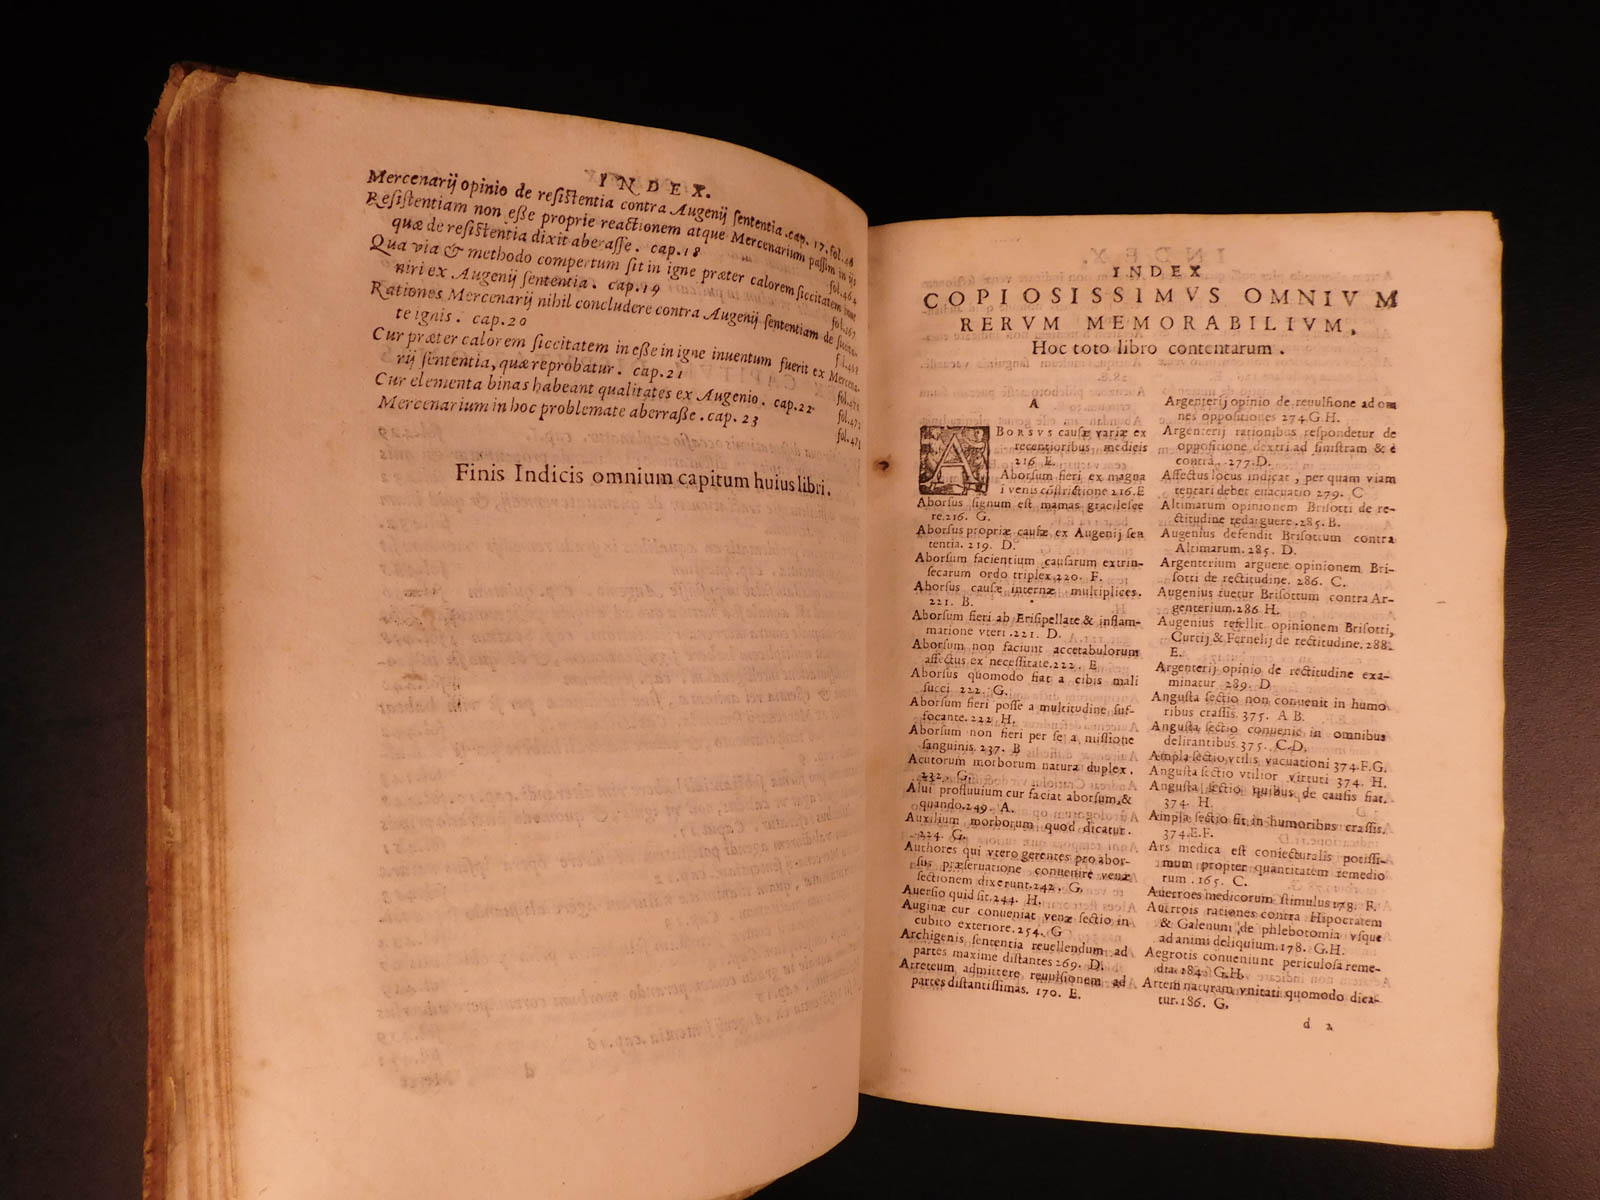 INDEX.
Mercenarij opinio de resistentia contra Augenij sententia. cap. 17. fol. 46
Resistentiam non esse proprie reactionem atque Mercenarium passim in ijs
quæ de resistentia dixit aberasse. cap. 18 fol. 464
Qua via & methodo compertum sit in igne præter calorem siccitatem
niri ex Augenij sententia. cap. 19
Rationes Mercenarij nihil concludere contra Augenij sententiam de
te ignis. cap. 20
Cur præter calorem siccitatem in esse in igne inuentum fuerit ex Mercena-
rij sententia, quæ reprobatur. cap. 21
Cur elementa binas habeant qualitates ex Augenio. cap. 22
Mercenarium in hoc problemate aberrasse. cap. 23
Finis Indicis omnium capitum huius libri.
INDEX
COPIOSISSIMVS OMNIVM
RERVM MEMORABILIVM,
Hoc toto libro contentarum.
A
ABORSVS causæ variæ ex
recentioribus medicis
216. E.
Aborsum fieri ex magna
i venis cōstrictione 216. E
Aborsus signum est mamas gracilesce
re. 216. G.
Aborsus propriæ causæ ex Augenij sen
tentia. 219. D.
Aborsum facientium causarum extrin-
secarum ordo triplex. 220. F.
Aborsus causæ internæ multiplices.
221. B.
Aborsum fieri ab Erisipellate & inflam-
matione vteri. 221. D.
Aborsum non faciunt accetabulorum
affectus ex necessitate. 222. E
Aborsus quomodo fiat a cibis mali
succi 222. G.
Aborsum fieri posse a multitudine suf-
focante. 222 H.
Aborsum non fieri per se a missione
sanguinis. 237. B
Acutorum morborum natura duplex.
232. G.
Alui profluuium cur faciat aborsum, &
quando. 249. A.
Auxilium morborum quod dicatur.
224. G.
Authores qui vtero gerentes pro abor-
sus præseruatione conuenire venæ
sectionem dixerunt. 242. G.
Auersio quid sit. 244. H.
Auginæ cur conueniat venæ sectio in
cubito exteriore. 254. G
Archigenis sententia reuellendum ad
partes maxime distantes 269. D.
Arreteum admittere reuulsionem ad
partes distantissimas. 170. E.
Argenterij opinio de reuulsione ad om
nes oppositiones 274. G. H.
Argenterij rationibus respondetur de
oppositione dextri ad sinistram & e
contra. 277. D.
Affectus locus indicat, per quam viam
tentari debet euacuatio 279. C
Altimarum opinionem Brisotti de re-
ctitudine redarguere. 285. B.
Augenius defendit Brisottum contra
Altimarum. 285. D.
Argenterium arguere opinionem Bri-
sotti de rectitudine. 286. C.
Augenius tuetur Brisottum contra Ar-
genterium. 286 H.
Augenius refellit opinionem Brisotti,
Curtij & Fernelij de rectitudine. 288.
E.
Argenterij opinio de rectitudine exa-
minatur 289. D
Angusta sectio non conuenit in humo
ribus crassis. 375. A B.
Angusta sectio conuenit in omnibus
delirantibus 375. C. D.
Ampla sectio vtilis vacuationi 374. F. G.
Angusta sectio vtilior virtuti 374. H.
Angusta sectio quibus de causis fiat.
374. H.
Ampla sectio fit in humoribus crassis.
374. E. F.
Ars medica est coniecturalis potissi-
mum propter quantitatem remedio
rum. 165. C.
Auerroes medicorum stimulus 178. F.
Auerrois rationes contra Hipocratem
& Galenum de phlebotomia vsque
ad animi deliquium. 178. G. H.
Aegrotis conueniunt periculosa reme-
dia. 184. G. H.
Artem naturam vnitati quomodo dica-
tur. 186. G.
d 2